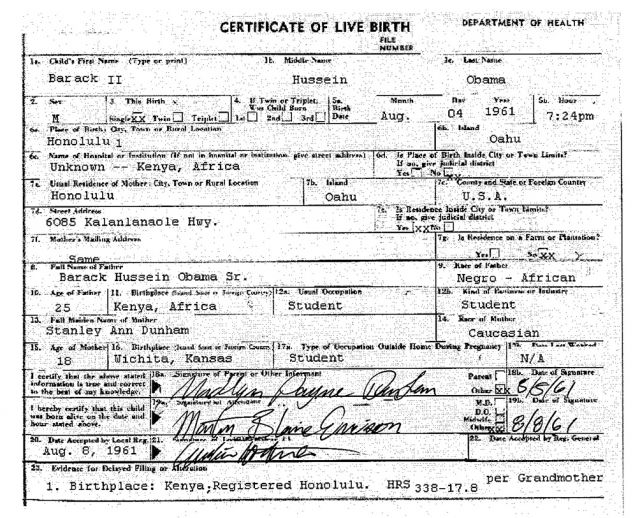 CERTIFICATE OF LIVE BIRTH DEPARTMENT OF HEALTH
FILE
NUMBER
1a. Child's First Name (Type or print) 1b. Middle Name 1c. Last Name
Barack II Hussein Obama
2. Sex 3. This Birth 4. If Twin or Triplet, Was Child Born 5a. Birth Date Month Day Year 5b. Hour
M Single XX Twin Triplet 1st 2nd 3rd Aug. 04 1961 7:24pm
6a. Place of Birth: City, Town or Rural Location 6b. Island
Honolulu Oahu
6c. Name of Hospital or Institution (If not in hospital or institution, give street address) 6d. Is Place of Birth Inside City or Town Limits? If no, give judicial district
Unknown -- Kenya, Africa Yes No XX
7a. Usual Residence of Mother: City, Town or Rural Location 7b. Island 7c. County and State or Foreign Country
Honolulu Oahu U.S.A.
7d. Street Address 7e. Is Residence Inside City or Town Limits? If no, give judicial district
6085 Kalanlanaole Hwy. Yes XX No
7f. Mother's Mailing Address 7g. Is Residence on a Farm or Plantation?
Same Yes No XX
8. Full Name of Father 9. Race of Father
Barack Hussein Obama Sr. Negro - African
10. Age of Father 11. Birthplace (Island, State or Foreign Country) 12a. Usual Occupation 12b. Kind of Business or Industry
25 Kenya, Africa Student Student
13. Full Maiden Name of Mother 14. Race of Mother
Stanley Ann Dunham Caucasian
15. Age of Mother 16. Birthplace (Island, State or Foreign Country) 17a. Type of Occupation Outside Home During Pregnancy 17b. Date Last Worked
18 Wichita, Kansas Student N/A
I certify that the above stated information is true and correct to the best of my knowledge. 18a. Signature of Parent or Other Informant Parent Other XX 18b. Date of Signature
Madelyn Payne Dunham 8/8/61
I hereby certify that this child was born alive on the date and hour stated above. 19a. Signature of Attendant M.D. D.O. Midwife Other XX 19b. Date of Signature
8/8/61
20. Date Accepted by Local Reg. 21. 22. Date Accepted by Reg. General
Aug. 8, 1961
23. Evidence for Delayed Filing or Alteration
1. Birthplace: Kenya;Registered Honolulu. HRS 338-17.8 per Grandmother